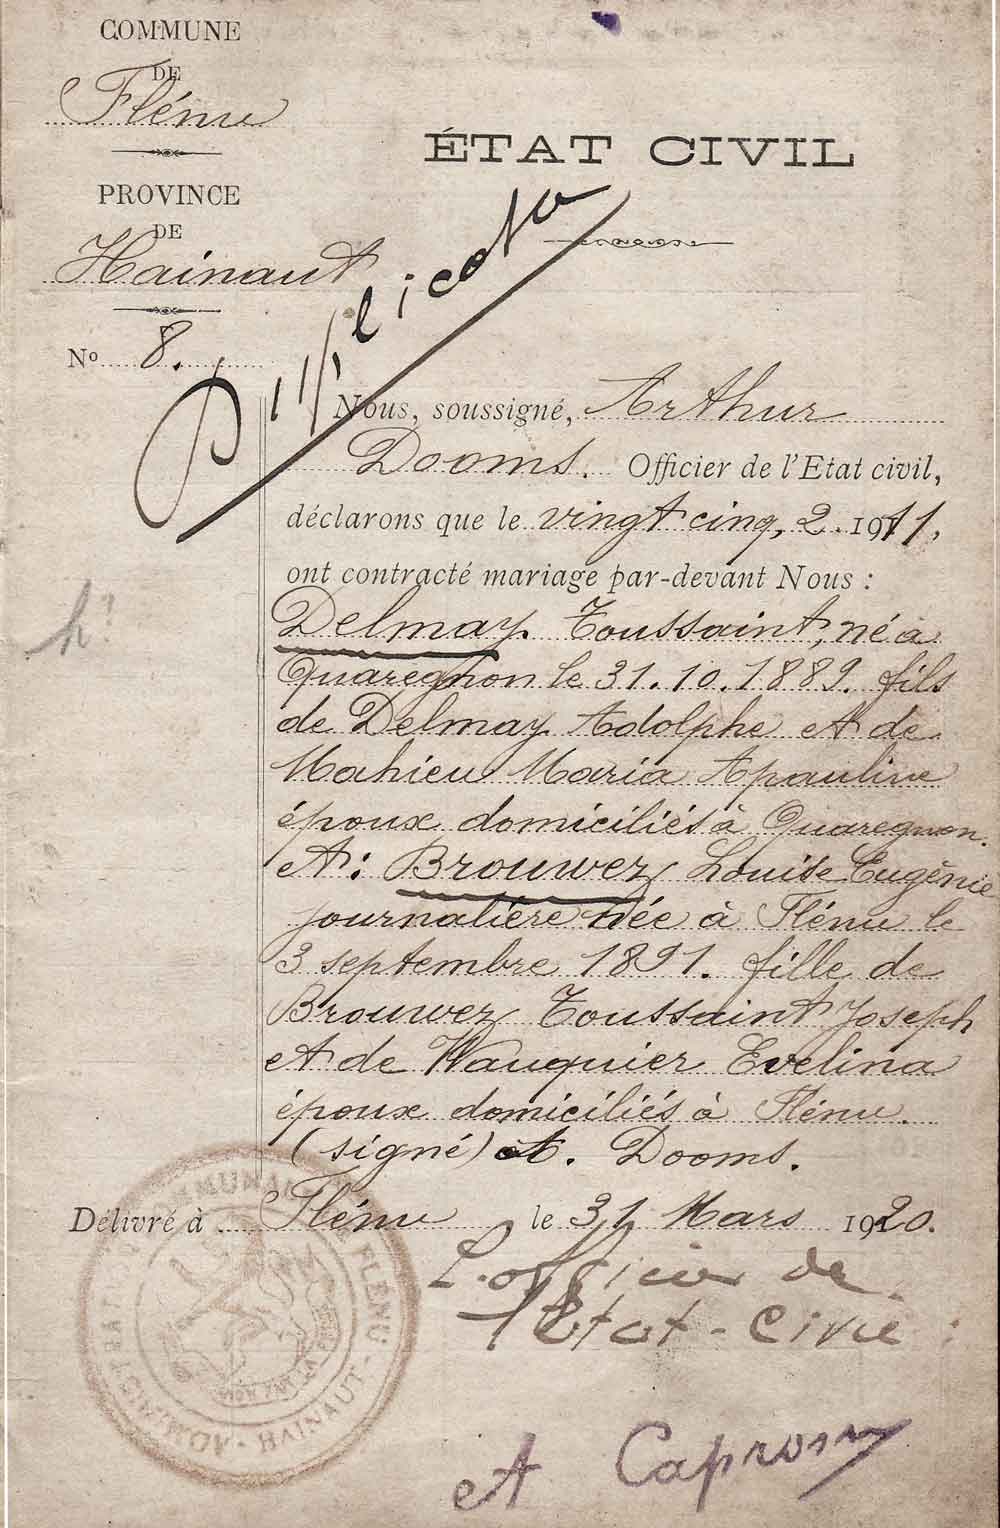 COMMUNE
DE
Flénu
PROVINCE
DE
Hainaut
Nº 8.
ÉTAT CIVIL
Duplicata
Nous, soussigné, Arthur
Dooms. Officier de l'Etat civil,
déclarons que le vingt cinq, 2. 1911,
ont contracté mariage par-devant Nous :
Delmay Toussaint, né à
Quaregnon le 31.10.1889. fils
de Delmay Adolphe et de
Mahieu Maria Apauline
époux domiciliés à Quaregnon.
et: Brouwez Louise Eugénie
journalière née à Flénu le
3 septembre 1891. fille de
Brouwez Toussaint Joseph
et de Wauquier Evelina
époux domiciliés à Flénu.
(signé) A. Dooms.
Délivré à Flénu le 31 Mars 1920.
L'officier de
l'Etat-Civil :
A Capron
ADMINISTRAT COMMUNALE FLENU
HAINAUT